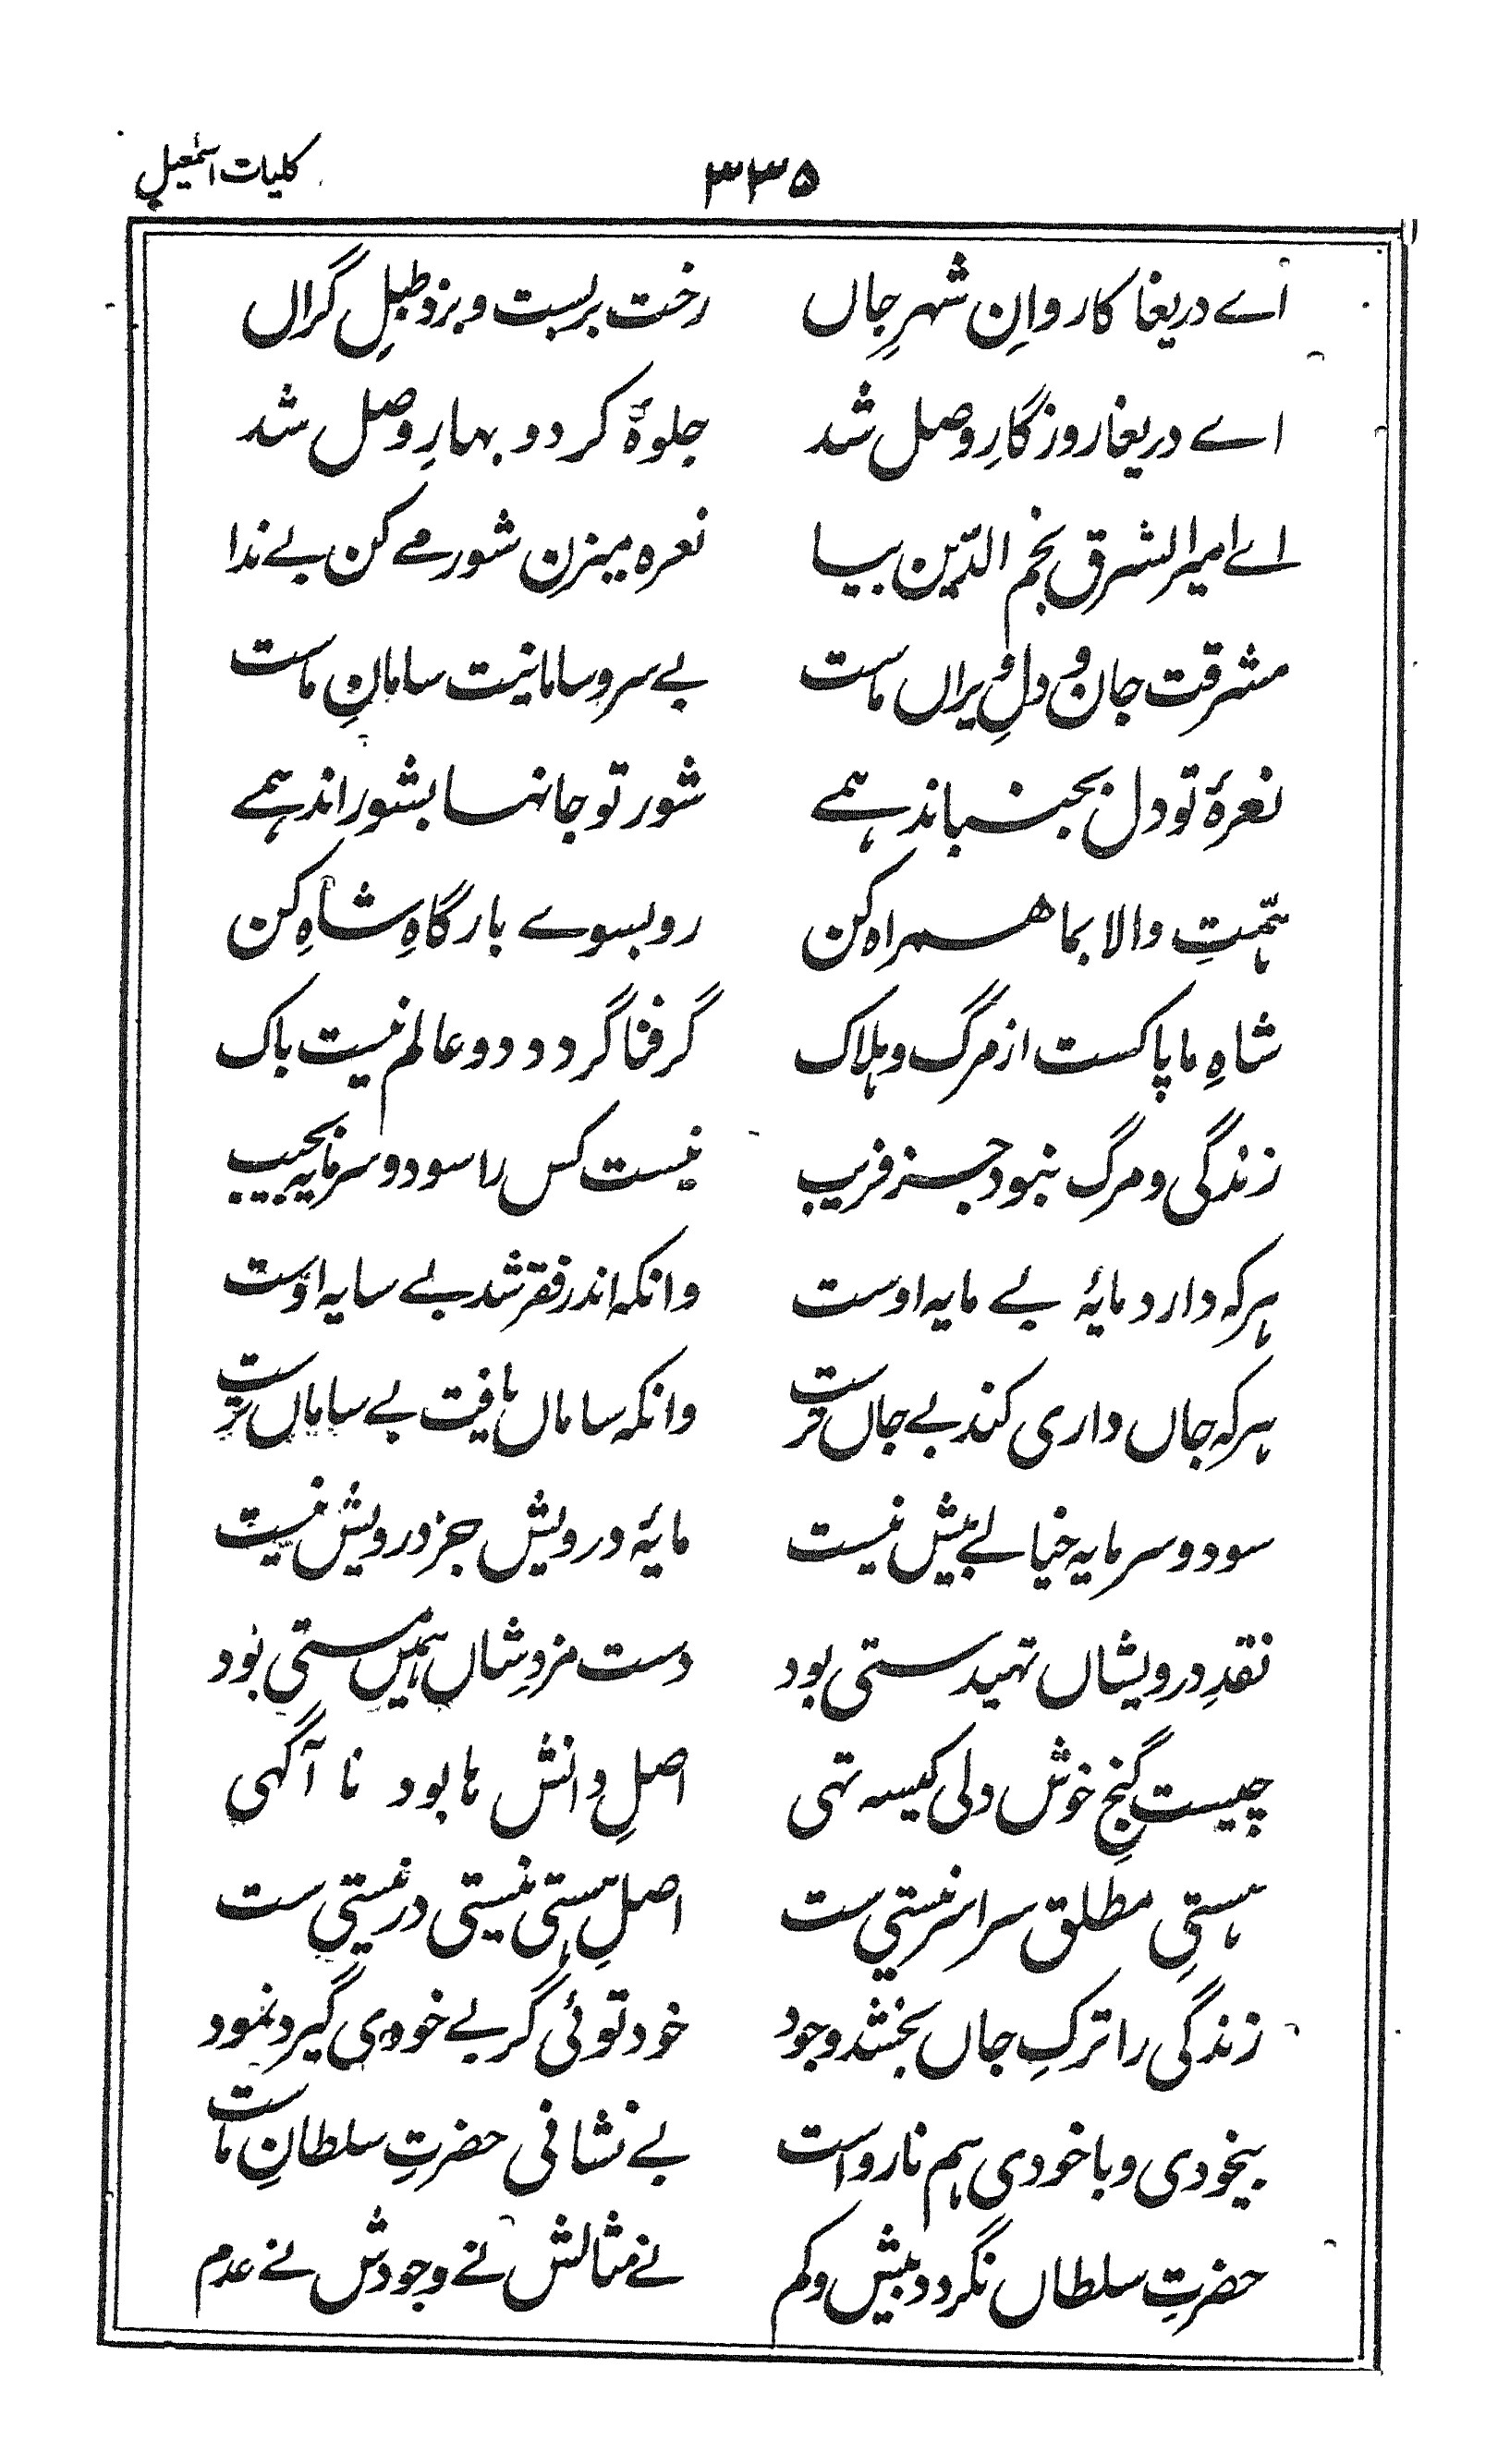 کلیات اسمٰعیل ۳۳۵
اے دریغا کاروانِ شہرِ جاں رخت بربست و بزد طبلِ گراں
اے دریغا روزگارِ وصل شد جلوۂ کرد و بہارِ وصل شد
اے امیر الشرق نجم الدّین بیا نعرہ میزن شور مے کن بے ندا
مشرقت جان و دلِ ویراں ماست بے سر و سامانیت سامانِ ماست
نعرۂ تو دل بجنباند ہمے شور تو جانہا بشوراند ہمے
ہمّتِ والا بما ہمراہ کن رو بسوے بارگاہِ شاہِ کن
شاہِ ما پاکست از مرگ و ہلاک گر فنا گردد دو عالم نیست باک
زندگی و مرگ نبود جز فریب نیست کس را سود و سرمایہ بجیب
ہرکہ دارد مایۂ بے مایہ اوست وانکہ اندر فقر شد بے سایہ اوست
ہرکہ جاں داری کند بے جاں ترست وانکہ ساماں یافت بے ساماں ترست
سود و سرمایہ خیالے بیش نیست مایۂ درویش جز درویش نیست
نقدِ درویشاں تہیدستی بود دست مزدِ شاں ہمیں مستی بود
چیست گنجِ خوش دلی کیسہ تہی اصلِ دانش ہا بود نا آگہی
ہستیِ مطلق سراسر نیستی ست اصلِ ہستی نیستی در نیستی ست
زندگی را ترکِ جاں بخشد وجود خود توئی گر بے خودی گیرد نمود
بیخودی و باخودی ہم نارواست بے نشانی حضرتِ سلطانِ ماست
حضرتِ سلطاں نگردد بیش و کم نے مثالش نے وجودش نے عدم